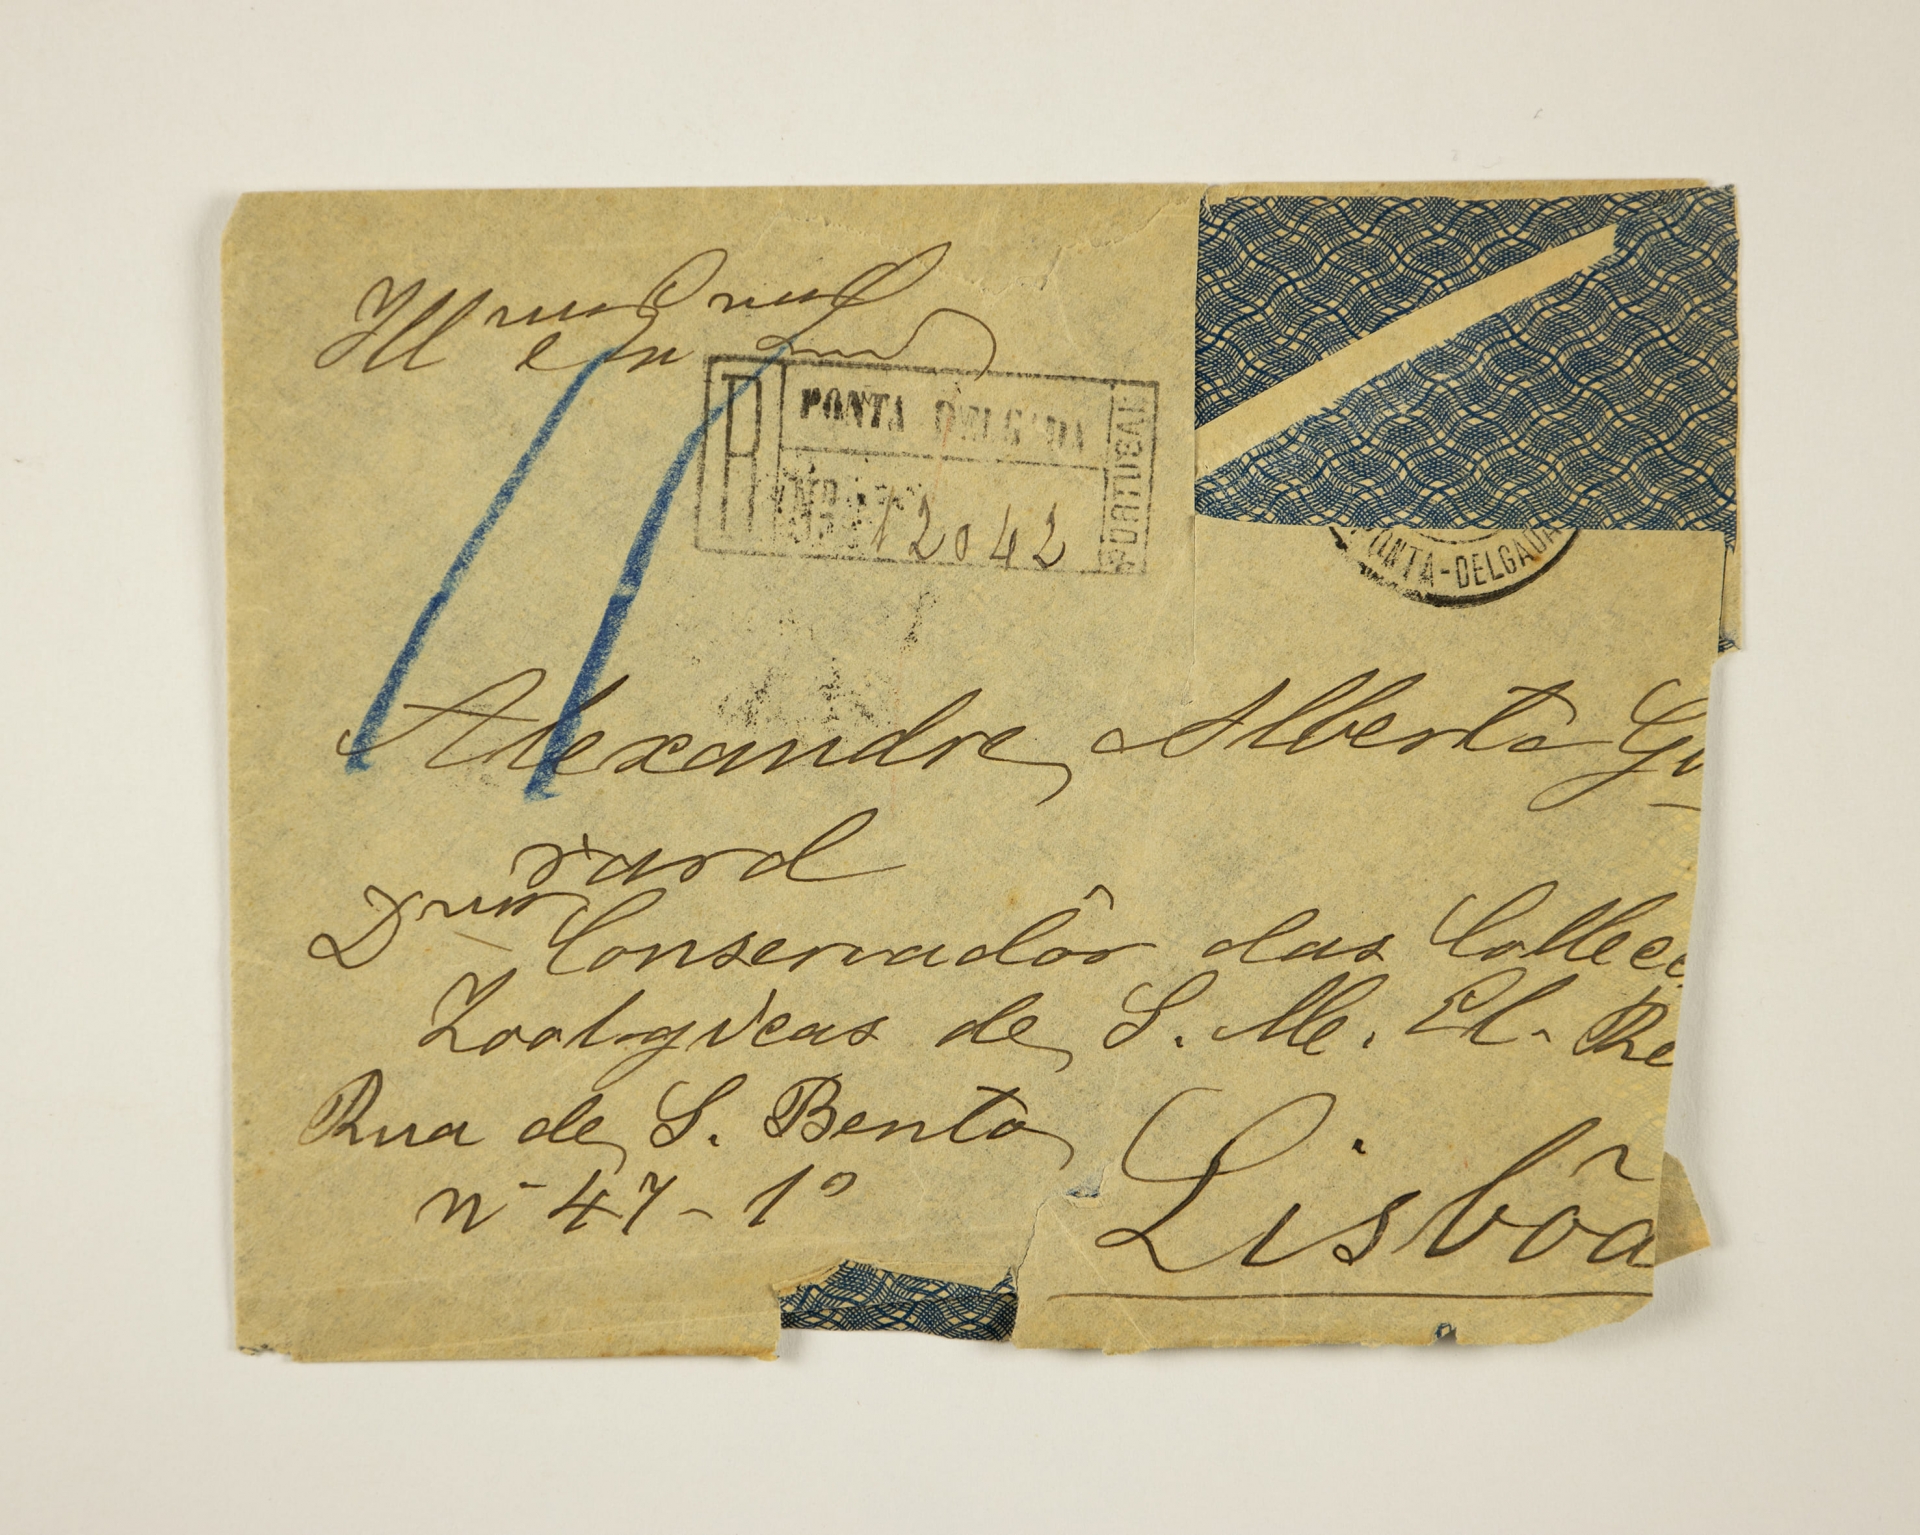 Illmo e Exmo Snr
R PONTA DELGADA PORTUGAL
12042
PONTA-DELGADA
Alexandre Alberto Gi
rard
Dmo Conservadôr das Collec
Zoologicas de S. M. El-Re
Rua de S. Bento
nº 47-1º
Lisbôa